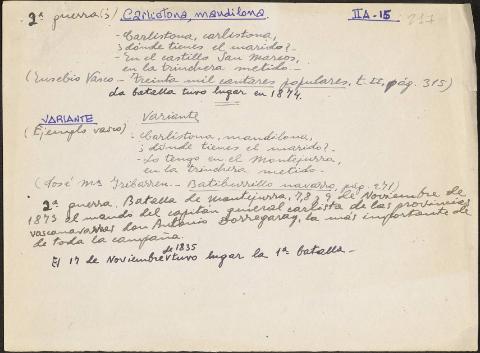 2ª guerra(s) Carlistona, mandilona. IIA-15 217
- Carlistona, carlistona,
¿dónde tienes el marido?-
- En el castillo San Marcos,
en la trinchera metido.-
(Eusebio Vasco - Treinta mil cantares populares, t. II, pág. 315)
La batalla tuvo lugar en 1874.
VARIANTE Variante
(Ejemplo vasco) - Carlistona, mandilona,
¿dónde tienes el marido?-
- Lo tengo en el Montejurra,
en la trinchera metido.
(José Mª Iribarren - Batiburrillo navarro, pág. 271)
2ª guerra. Batalla de Montejurra, 7, 8 y 9 de Noviembre de
1873 al mando del capitán general carlista de las provincias
vasconavarras don Antonio Dorregaray, la más importante de
de toda la campaña.
El 17 de Noviembre de 1835 tuvo lugar la 1ª batalla -